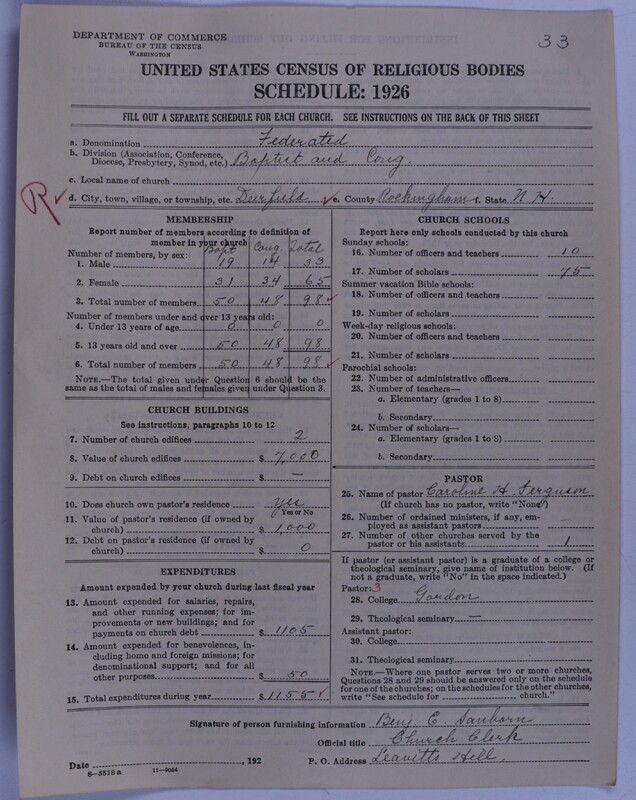 DEPARTMENT OF COMMERCE
BUREAU OF THE CENSUS
WASHINGTON
33
UNITED STATES CENSUS OF RELIGIOUS BODIES
SCHEDULE: 1926
FILL OUT A SEPARATE SCHEDULE FOR EACH CHURCH. SEE INSTRUCTIONS ON THE BACK OF THIS SHEET
a. Denomination Federated
b. Division (Association, Conference, Diocese, Presbytery, Synod, etc.) Baptist and Cong.
c. Local name of church
R d. City, town, village, or township, etc. Deerfield e. County Rockingham f. State N. H.
MEMBERSHIP
Report number of members according to definition of
member in your church
Bapt Cong. Total
Number of members, by sex:
1. Male 19 14 33
2. Female 31 34 65
3. Total number of members 50 48 98
Number of members under and over 13 years old:
4. Under 13 years of age 0 0 0
5. 13 years old and over 50 48 98
6. Total number of members 50 48 98
NOTE.—The total given under Question 6 should be the
same as the total of males and females given under Question 3.
CHURCH BUILDINGS
See instructions, paragraphs 10 to 12
7. Number of church edifices 2
8. Value of church edifices $ 7,000
9. Debt on church edifices $ —
10. Does church own pastor's residence yes
Yes or No
11. Value of pastor's residence (if owned by
church) $ 1,000
12. Debt on pastor's residence (if owned by
church) $ 0
EXPENDITURES
Amount expended by your church during last fiscal year
13. Amount expended for salaries, repairs,
and other running expenses; for im-
provements or new buildings; and for
payments on church debt $ 1105
14. Amount expended for benevolences, in-
cluding home and foreign missions; for
denominational support; and for all
other purposes $ 50
15. Total expenditures during year $ 1155
CHURCH SCHOOLS
Report here only schools conducted by this church
Sunday schools:
16. Number of officers and teachers 10
17. Number of scholars 75
Summer vacation Bible schools:
18. Number of officers and teachers
19. Number of scholars
Week-day religious schools:
20. Number of officers and teachers
21. Number of scholars
Parochial schools:
22. Number of administrative officers
23. Number of teachers—
a. Elementary (grades 1 to 8)
b. Secondary
24. Number of scholars—
a. Elementary (grades 1 to 8)
b. Secondary
PASTOR
25. Name of pastor Caroline H. Ferguson
(If church has no pastor, write "None")
26. Number of ordained ministers, if any, em-
ployed as assistant pastors —
27. Number of other churches served by the
pastor or his assistants 1
If pastor (or assistant pastor) is a graduate of a college or
theological seminary, give name of institution below. (If
not a graduate, write "No" in the space indicated.)
Pastor: 3
28. College Gordon
29. Theological seminary —
Assistant pastor:
30. College
31. Theological seminary
NOTE.—Where one pastor serves two or more churches,
Questions 28 and 29 should be answered only on the schedule
for one of the churches; on the schedules for the other churches,
write "See schedule for church."
Signature of person furnishing information Benj. E. Sanborn
Official title Church Clerk
Date , 192 P. O. Address Leavitts Hill,
6-5518 a 11-8084